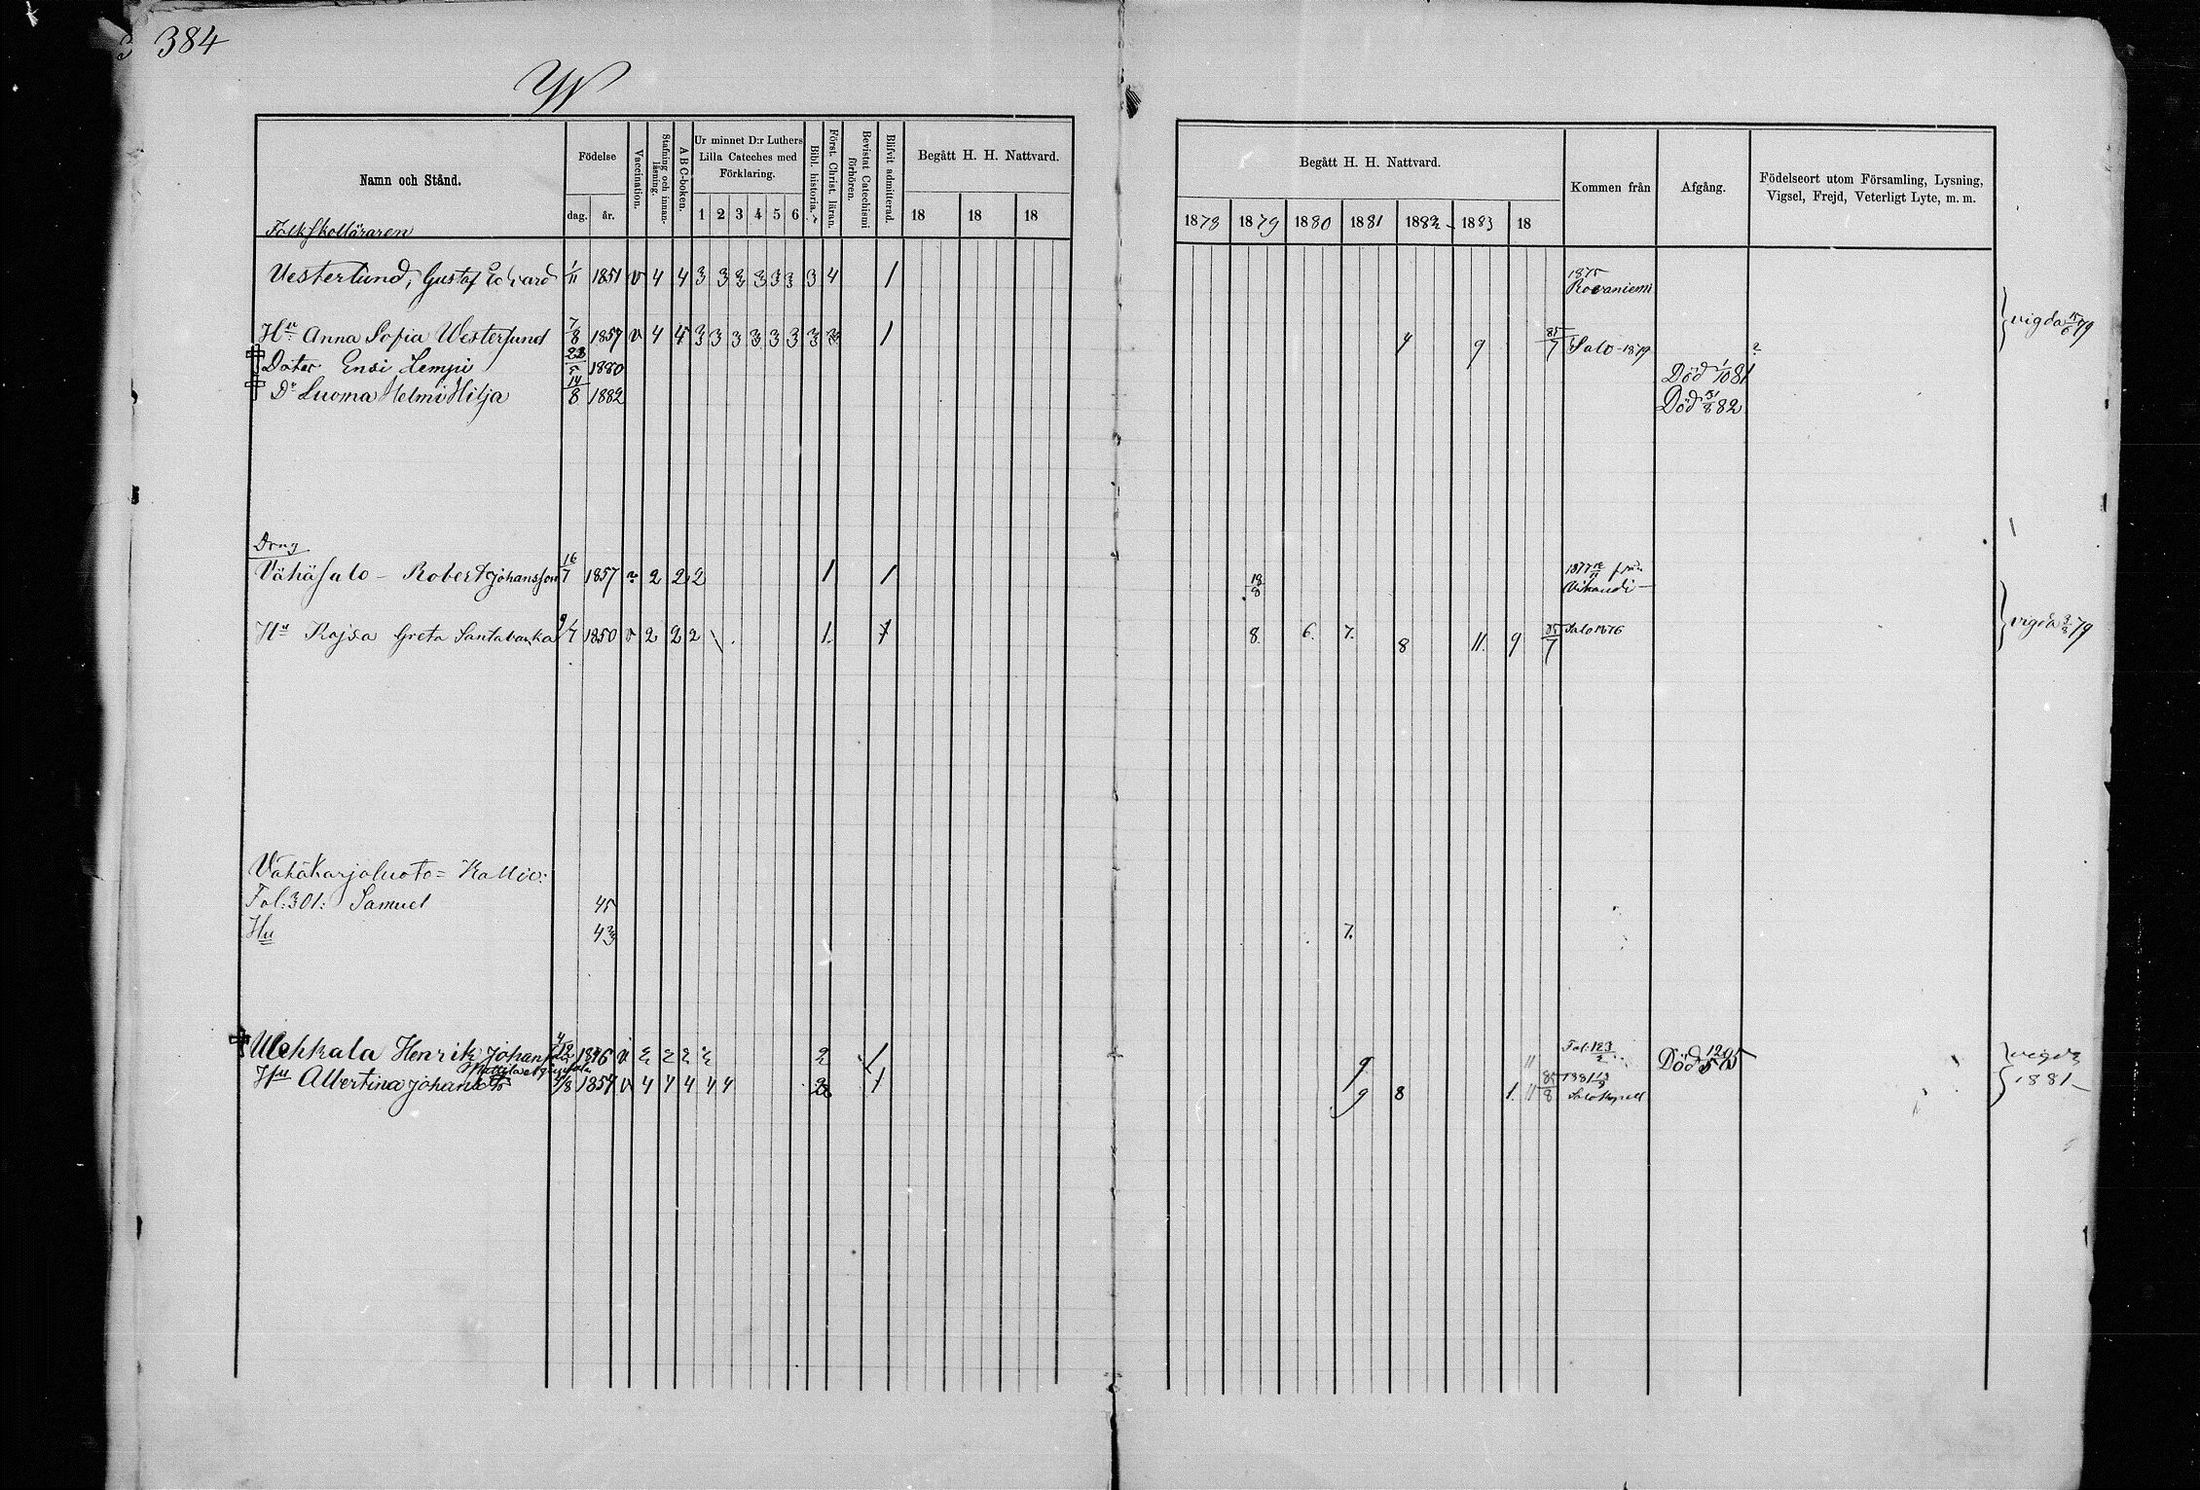 384
W
Namn och Stånd.
Födelse
dag. år.
Vaccination.
Stafning och innan-läsning.
A B C-boken.
Ur minnet D:r Luthers Lilla Cateches med Förklaring.
1 2 3 4 5 6
Bibl. historia.
Först. Christ. läran.
Bevistat Catechismi förhören.
Blifvit admitterad.
Begått H. H. Nattvard.
18 18 18
Begått H. H. Nattvard.
1878 1879 1880 1881 1882 1883 18
Kommen från
Afgång.
Födelseort utom Församling, Lysning, Vigsel, Frejd, Veterligt Lyte, m. m.
Folkskolläraren
Vesterlund, Gustaf Edvard 1/11 1851 v 4 4 3 3 3 3 3 3 3 4 1 1875 Rovaniemi
Hu Anna Sofia Westerlund 7/8 1857 v 4 4 3 3 3 3 3 3 3 1 4 9 85/7 Salo 1879 vigda 15/6 79
Dotter Ensi Lempi 1880 Död 1/10 81
Dr Luoma Helmi Hilja 14/8 1882 Död 31/8 82
Dräng
Vähäsalo - Robert Johansson 16/7 1857 2 2 2 1 1 18/8 1877
Hu Kajsa Greta Santabacka 9/7 1850 v 2 2 2 1. 1 8. 6. 7. 8 11. 9 85/7 Salo 1876 vigda 79
Vähäkarjaluoto = Kallio:
Fol: 301: Samuel 45
Hu 43 7.
Wehkala Henrik Johansson v 2 2 2 2 2 1 9 11 Fol: 123/2 Död 5 vigda 1881
Hu Albertina Johansdr 1857 v 4 4 4 4 4 1 9 8 1. 11 85/8 1881 Salo kapell